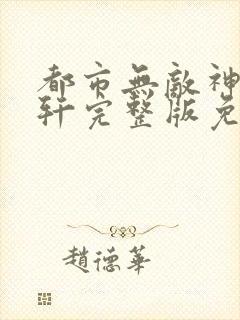 都市無敵神
軒完整版免
趙德華